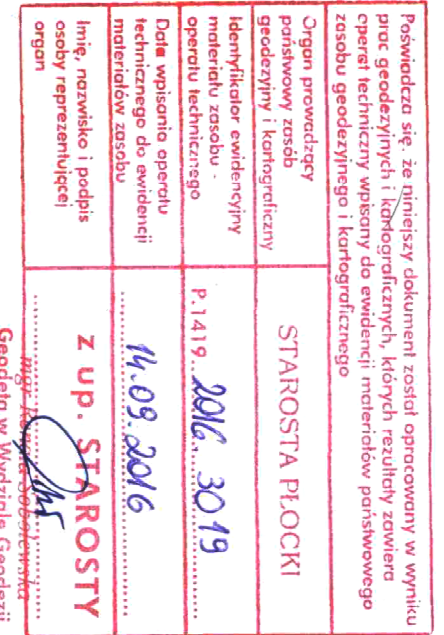 Poświadcza się, że niniejszy dokument został opracowany w wyniku
prac geodezyjnych i kartograficznych, których rezultaty zawiera
operat techniczny wpisany do ewidencji materiałów państwowego
zasobu geodezyjnego i kartograficznego
Organ prowadzący
państwowy zasób
geodezyjny i kartograficzny
STAROSTA PŁOCKI
Identyfikator ewidencyjny
materiału zasobu -
operatu technicznego
P.1419.2016.3019
Data wpisania operatu
technicznego do ewidencji
materiałów zasobu
14.09.2016
Imię, nazwisko i podpis
osoby reprezentującej
organ
z up. STAROSTY
mgr Sobolewska
Geodeta w Wydziale Geodezji